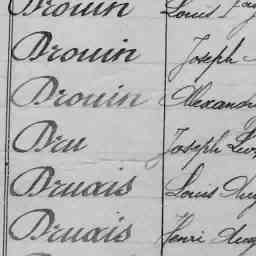 Drouin Louis
Drouin Joseph
Drouin Alexandre
Dru Joseph
Druais Louis
Druais Henri